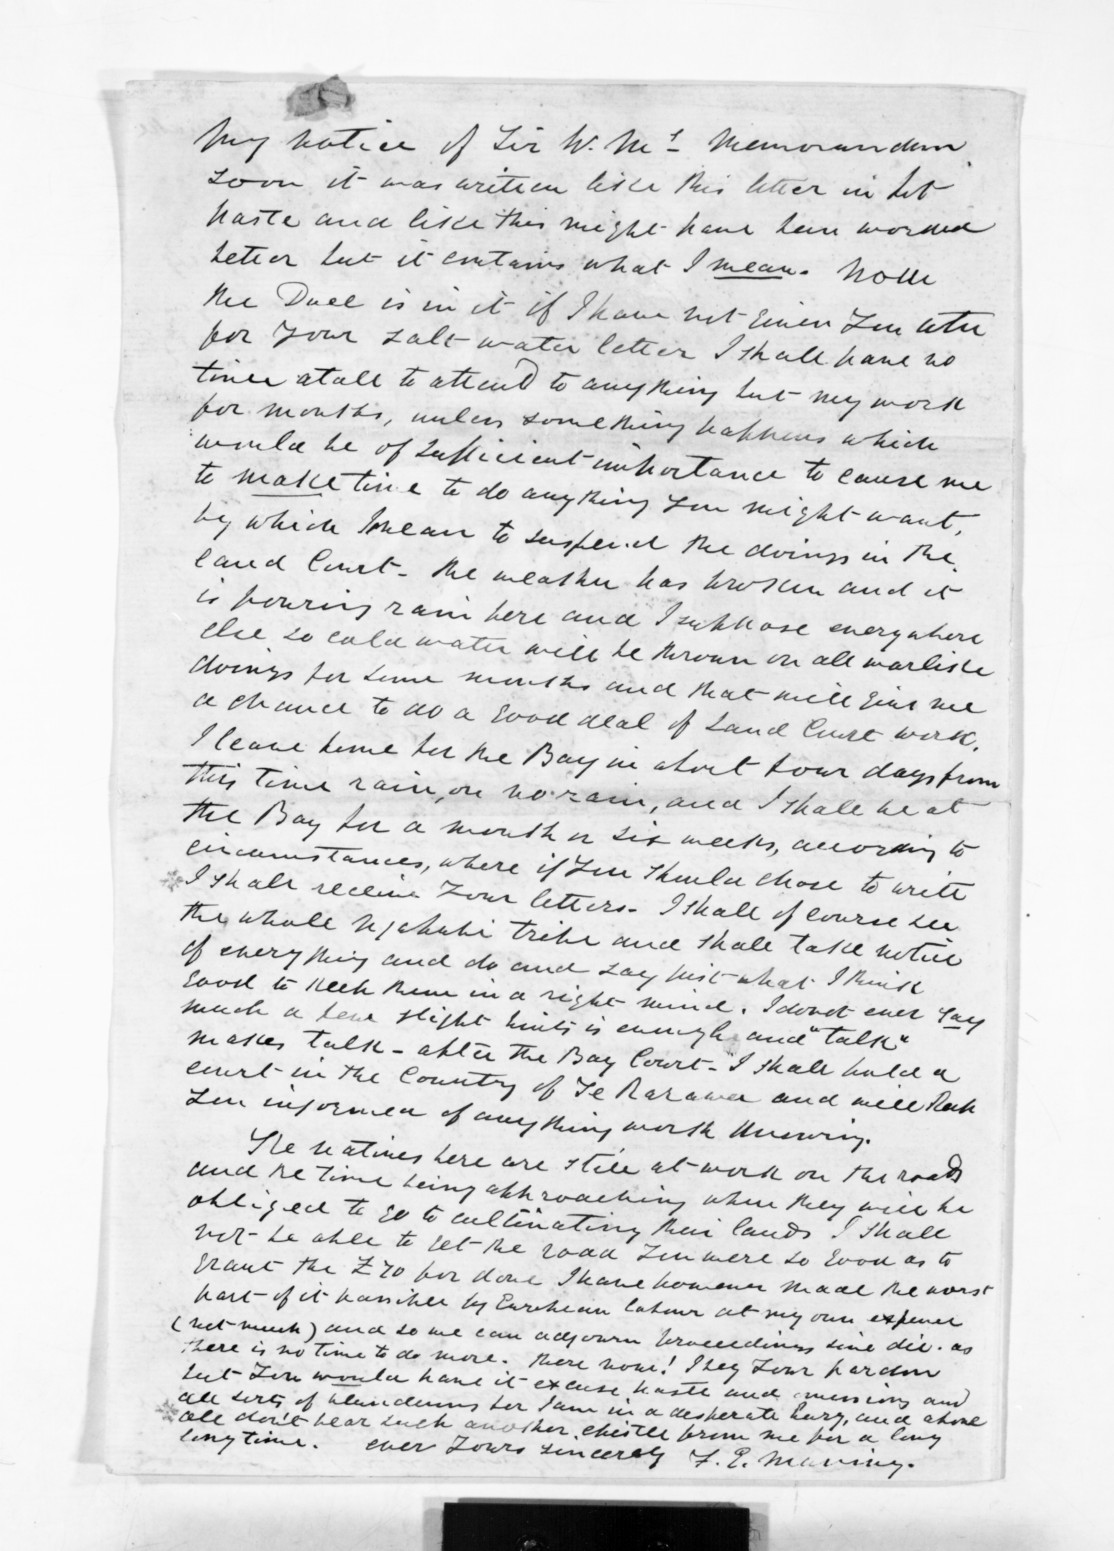 My notice of Sir W. Ms Memorandum
soon it was written like this letter in hot
haste and like this might have been worded
better but it contains what I mean. Now
the Duce is in it if I have not given you
for your salt water letter I shall have no
time atall to attend to anything but my work
for months, unless something happens which
would be of sufficient importance to cause me
to make time to do anything you might want,
by which I mean to suspend the doings in the
land Court - the weather has broken and it
is pouring rain here and I suppose everywhere
else so cold water will be thrown on all warlike
doings for some months and that will give me
a chance to do a good deal of Land Court work.
I leave home for the Bay in about four days from
this time rain, or no rain, and I shall be at
the Bay for a month or six weeks, according to
circumstances, where if you should chose to write
I shall receive your letters - I shall of course see
the whole Ngapuhi tribe and shall take notice
of everything and do and say just what I think
good to keep them in a right mind. I do not ever say
much a few slight hints is enough and "talk"
makes talk - after the Bay Court - I shall hold a
court in the Country of Te Rarawa and will keep
you informed of anything worth knowing.
The natives here are still at work on the roads
and the time being approaching when they will be
obliged to go to cultivating their lands I shall
not be able to get the road you were so good as to
grant the £70 for done I have however made the worst
part of it passible by European labour at my own expence
(not much) and so we can adjourn proceedings sine die. as
there is no time to do more. there now! I beg your pardon
but you would have it excuse haste and and
all sorts of blunderums for I am in a desperate hury, and above
all don't hear such another epistle from me for a long
long time. ever yours sincerely F. E. Maning.